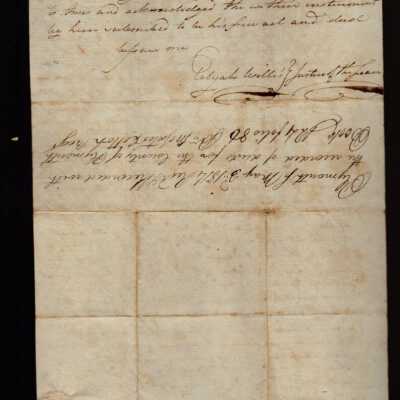 and acknowledged the within instrument
by him subscribed to be his free act and deed
before me
Justice of the peace
Plymouth Ss May 1814 Recd & Recorded with
the records of deeds for the County of Plymouth
Book folio 80 Rossiter Cotton Regr